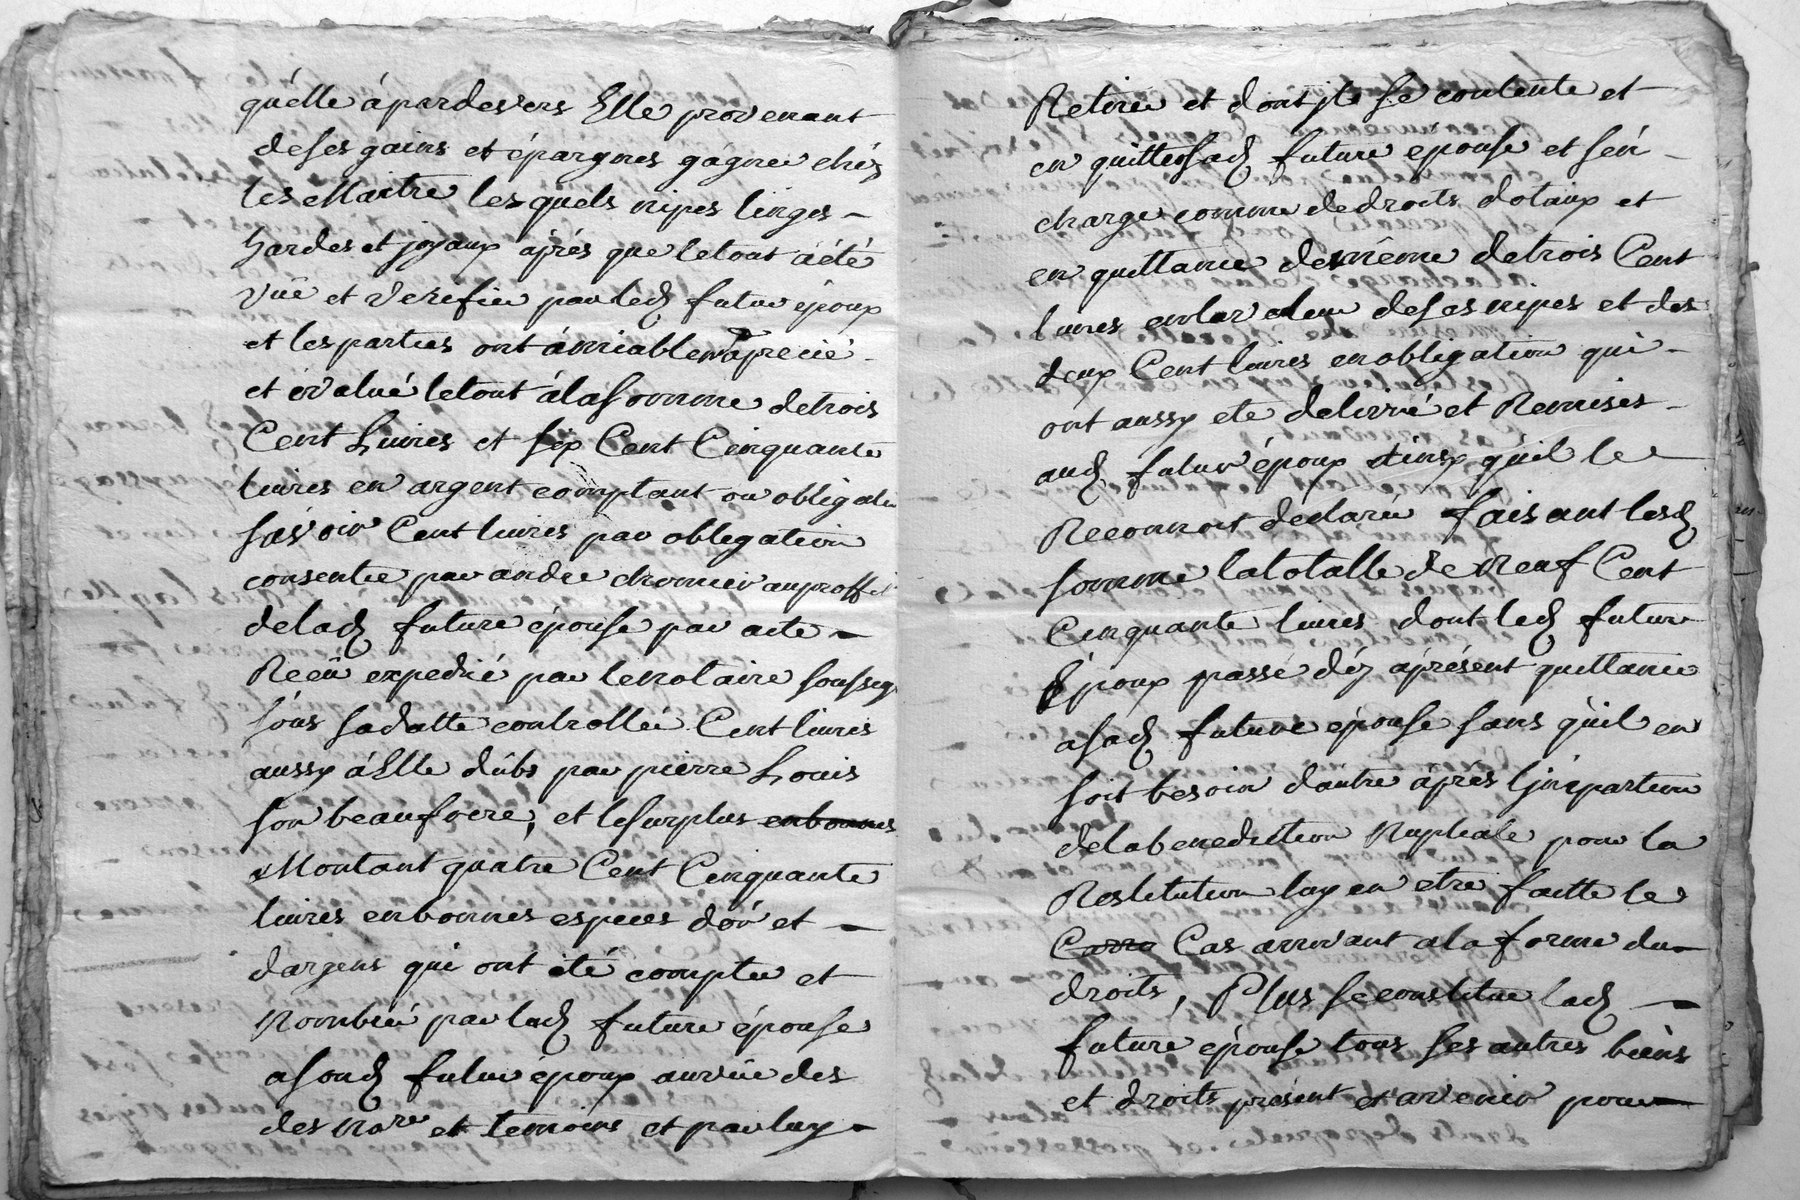 quélle á pardesvers Elle provenant
deses gains et épargnes gágnée chéz
les Maitre lesquels nipes linges -
hardes et joyaux áprés que letout áété
vúe et verifiée par led. futur époux
et les parties ont ámiablemt áprecié -
et évalué letout álasomme detrois
Cent Livres et six Cent Cinquante
livres en argent comptant ou obligati
sávoir Cent livres par obligation
consentie par andre auproffit
delad. future épouse par acte -
Reçû expedié par lenotaire soussig
sous sadatte controllée Cent livres
aussy áElle dûbs par pierre Louis
son beaufrere, et lesurplus enbonnes
Montant quatre Cent Cinquante
livres enbonnes especes dór et -
dargens qui ont été comptée et
Nombrée par lad. future épouse
asond. futur époux aurvûe des
des Nore et temoins et parluy -
Retirée et dont jls se contente et
en quitte sad. future epouse et sén -
charge comme dedroits dotaux et
en quittance demême detrois Cent
livres enlavaleur deses nipes et des
deux Cent livres enobligation qui -
ont aussy eté delivré et Remises -
aud. futur époux ainsy quil le
Reconnoit declaré faisant lesd.
somme latotalle de neuf Cent
Cinquante livres dont led. futur
Époux passe déz áprésent quittance
asad. future epouse sans quil en
soit besoin dautre áprés
delabenediction Nuptiale pour la
Restitution luy en etre faitte le
Cas arrivant ala forme du -
droits, Plus seconstitue lad. -
future épouse tous ses autres biens
et droits présent et avenir pour -